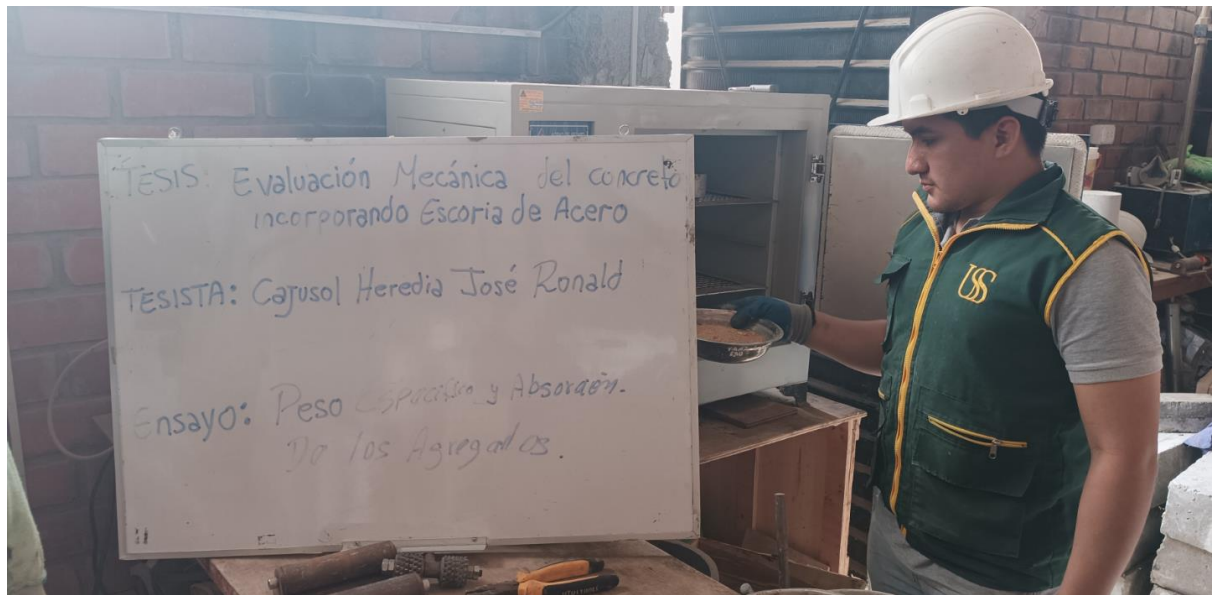 TESIS: Evaluación Mecánica del concreto
incorporando Escoria de Acero
TESISTA: Cajusol Heredia José Ronald
Ensayo: Peso Específico y Absorción.
De los Agregados.
USS